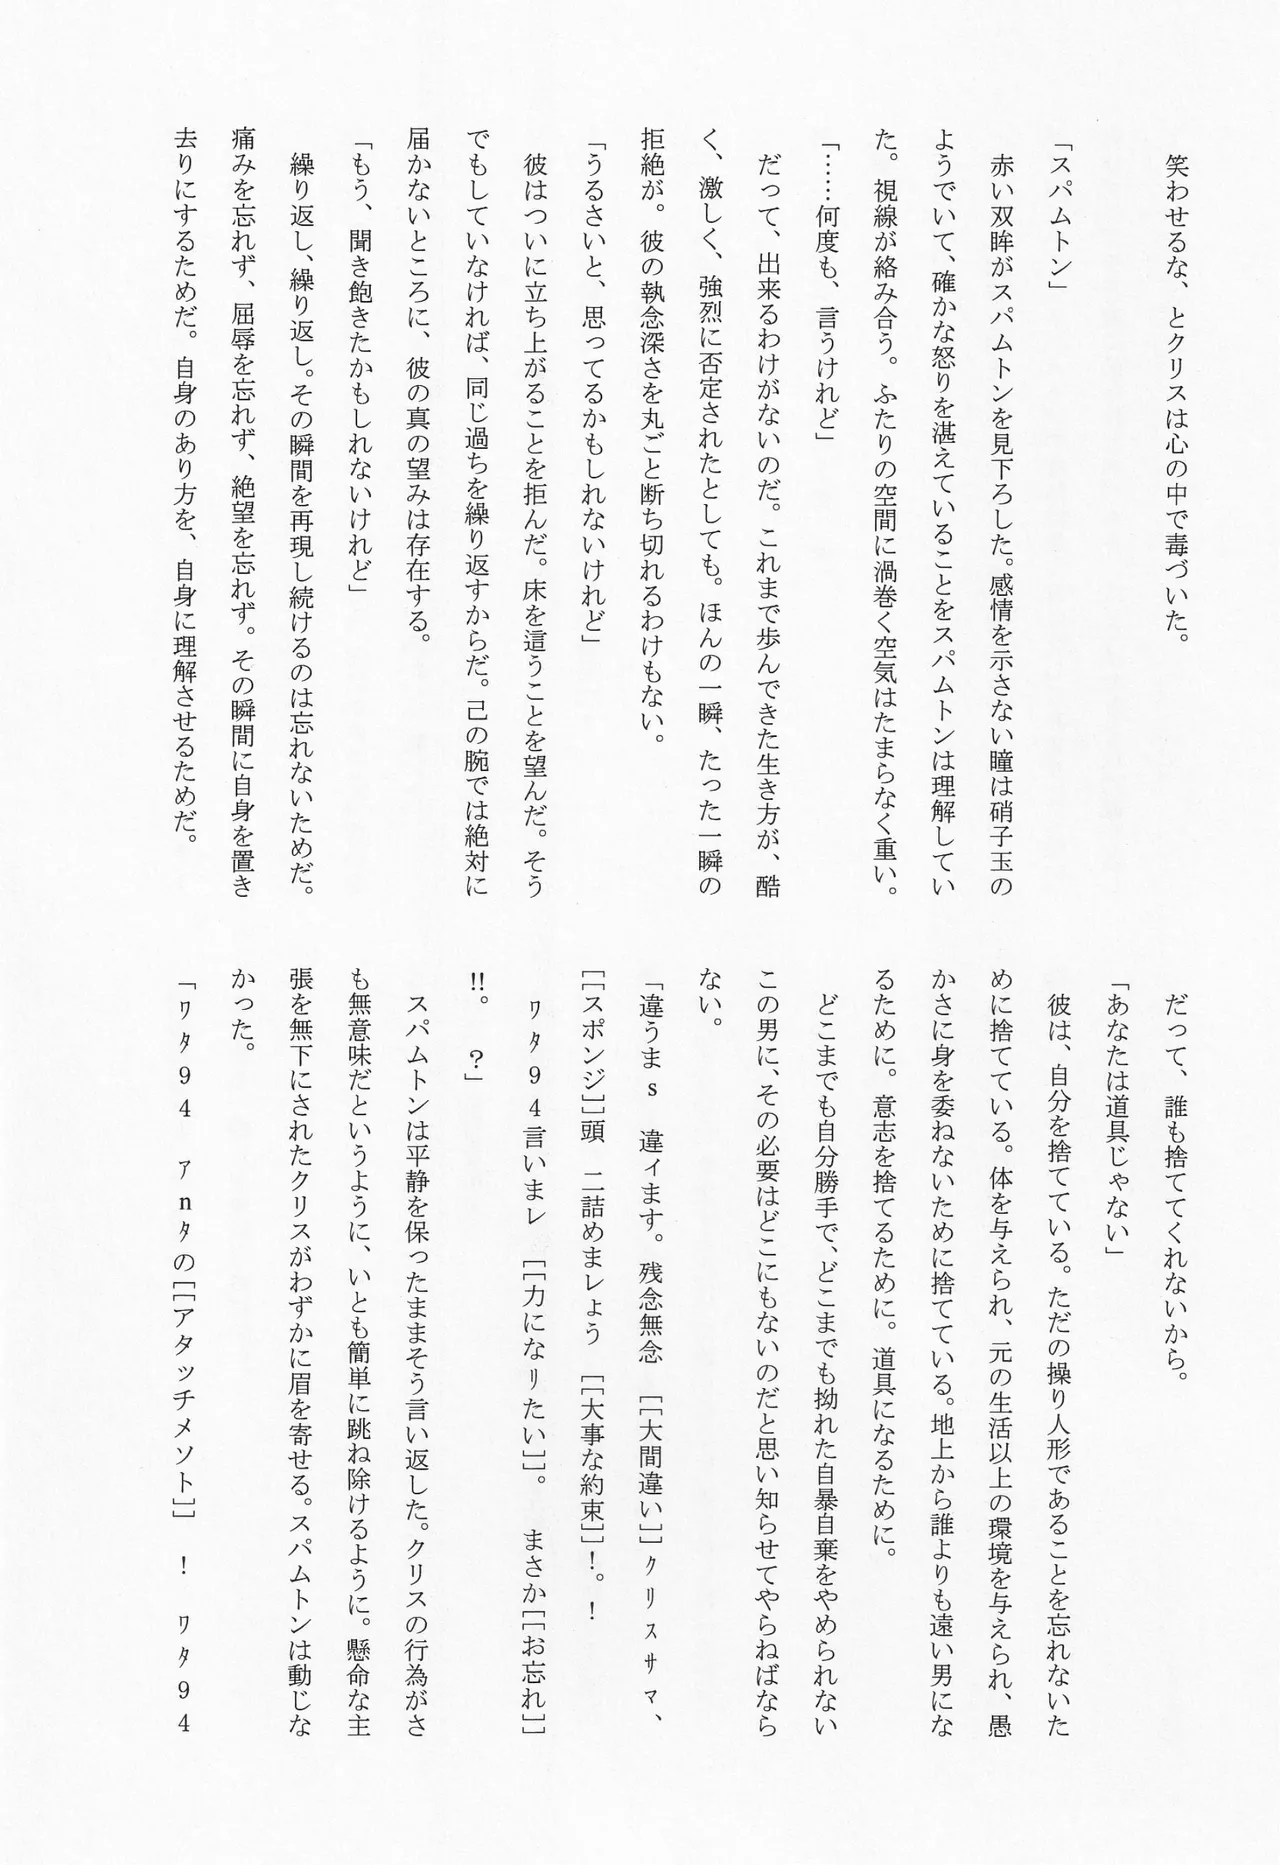 笑わせるな、とクリスは心の中で毒づいた。
「スパムトン」
赤い双眸がスパムトンを見下ろした。感情を示さない瞳は硝子玉の
ようでいて、確かな怒りを湛えていることをスパムトンは理解してい
た。視線が絡み合う。ふたりの空間に渦巻く空気はたまらなく重い。
「……何度も、言うけれど」
だって、出来るわけがないのだ。これまで歩んできた生き方が、酷
く、激しく、強烈に否定されたとしても。ほんの一瞬、たった一瞬の
拒絶が。彼の執念深さを丸ごと断ち切れるわけもない。
「うるさいと、思ってるかもしれないけれど」
彼はついに立ち上がることを拒んだ。床を這うことを望んだ。そう
でもしていなければ、同じ過ちを繰り返すからだ。己の腕では絶対に
届かないところに、彼の真の望みは存在する。
「もう、聞き飽きたかもしれないけれど」
繰り返し、繰り返し。その瞬間を再現し続けるのは忘れないためだ。
痛みを忘れず、屈辱を忘れず、絶望を忘れず。その瞬間に自身を置き
去りにするためだ。自身のあり方を、自身に理解させるためだ。
だって、誰も捨ててくれないから。
「あなたは道具じゃない」
彼は、自分を捨てている。ただの操り人形であることを忘れないた
めに捨てている。体を与えられ、元の生活以上の環境を与えられ、愚
かさに身を委ねないために捨てている。地上から誰よりも遠い男にな
るために。意志を捨てるために。道具になるために。
どこまでも自分勝手で、どこまでも拗れた自暴自棄をやめられない
この男に、その必要はどこにもないのだと思い知らせてやらねばなら
ない。
「違うまs　違ィます。残念無念　[[大間違い]]ｸﾘｽｻﾏ、
[[スポンジ]]頭　二詰めまレょう　[[大事な約束]]！。！
ﾜﾀ94言いまレ　[[力になﾘたい]]。　まさか[[お忘れ]]
‼。　？」
スパムトンは平静を保ったままそう言い返した。クリスの行為がさ
も無意味だというように、いとも簡単に跳ね除けるように。懸命な主
張を無下にされたクリスがわずかに眉を寄せる。スパムトンは動じな
かった。
「ﾜﾀ94　ｱnﾀの[[アタッチメソト]]　！　ﾜﾀ94